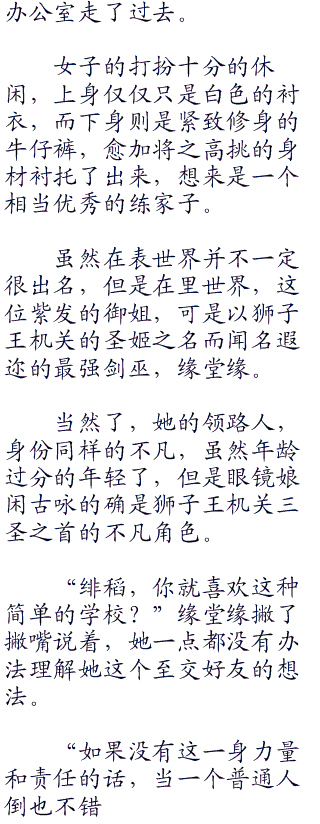 办公室走了过去。
女子的打扮十分的休
闲，上身仅仅只是白色的衬
衣，而下身则是紧致修身的
牛仔裤，愈加将之高挑的身
材衬托了出来，想来是一个
相当优秀的练家子。
虽然在表世界并不一定
很出名，但是在里世界，这
位紫发的御姐，可是以狮子
王机关的圣姬之名而闻名遐
迩的最强剑巫，缘堂缘。
当然了，她的领路人，
身份同样的不凡，虽然年龄
过分的年轻了，但是眼镜娘
闲古咏的确是狮子王机关三
圣之首的不凡角色。
“绯稻，你就喜欢这种
简单的学校？”缘堂缘撇了
撇嘴说着，她一点都没有办
法理解她这个至交好友的想
法。
“如果没有这一身力量
和责任的话，当一个普通人
倒也不错